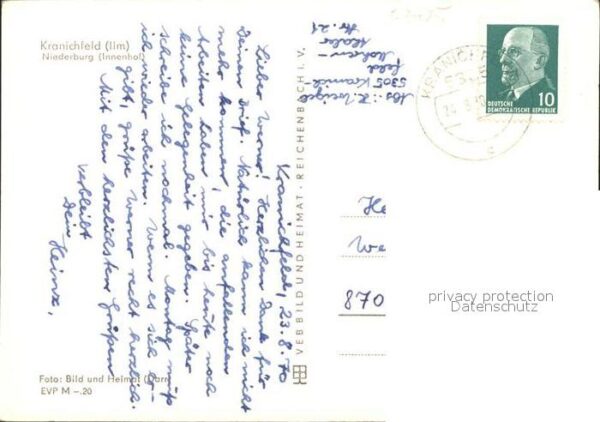 Kranichfeld (Ilm)
Niederburg (Innenhof)
Kranichfeld, 23.8.70
Lieber Werner! Herzlichen Dank für
Deinen Brief. Natürlich kann ich nicht
mehr kommen, die anfallenden
Arbeiten haben mir bis heute noch
keine Gelegenheit gegeben. Später
schreibe ich nochmal. Montag muß
ich wieder arbeiten. Wenn es sich er-
gibt, grüße Werner recht herzlich.
Mit den herzlichsten Grüßen
verbleibt
Dein Heinz.
Foto: Bild und Heimat (Darr)
EVP M –.20
VEB BILD UND HEIMAT · REICHENBACH I. V.
Abs.: H. Weigel
5305 Kranich-
feld
Nr. 21
KRANICHF
24. 8.
c
DEUTSCHE
DEMOKRATISCHE REPUBLIK
10
He
We
870
privacy protection
Datenschutz